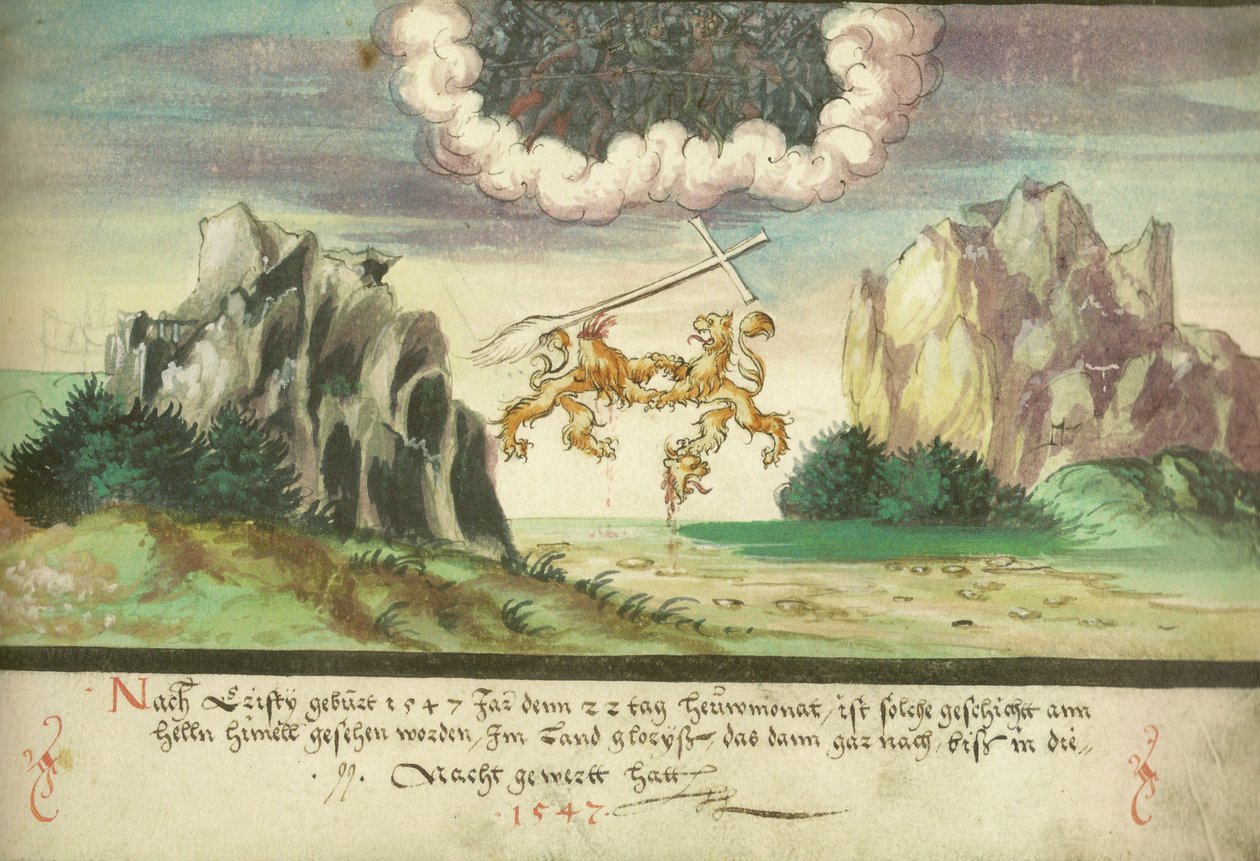 Nach Cristy gebürt 1547 Jar denn 22 tag heüwmonat / ist solche geschicht ann
helln himell gesehen worden / Im Land gloryß / das dann gar nach / biß in die
Nacht gewertt hatt
1547